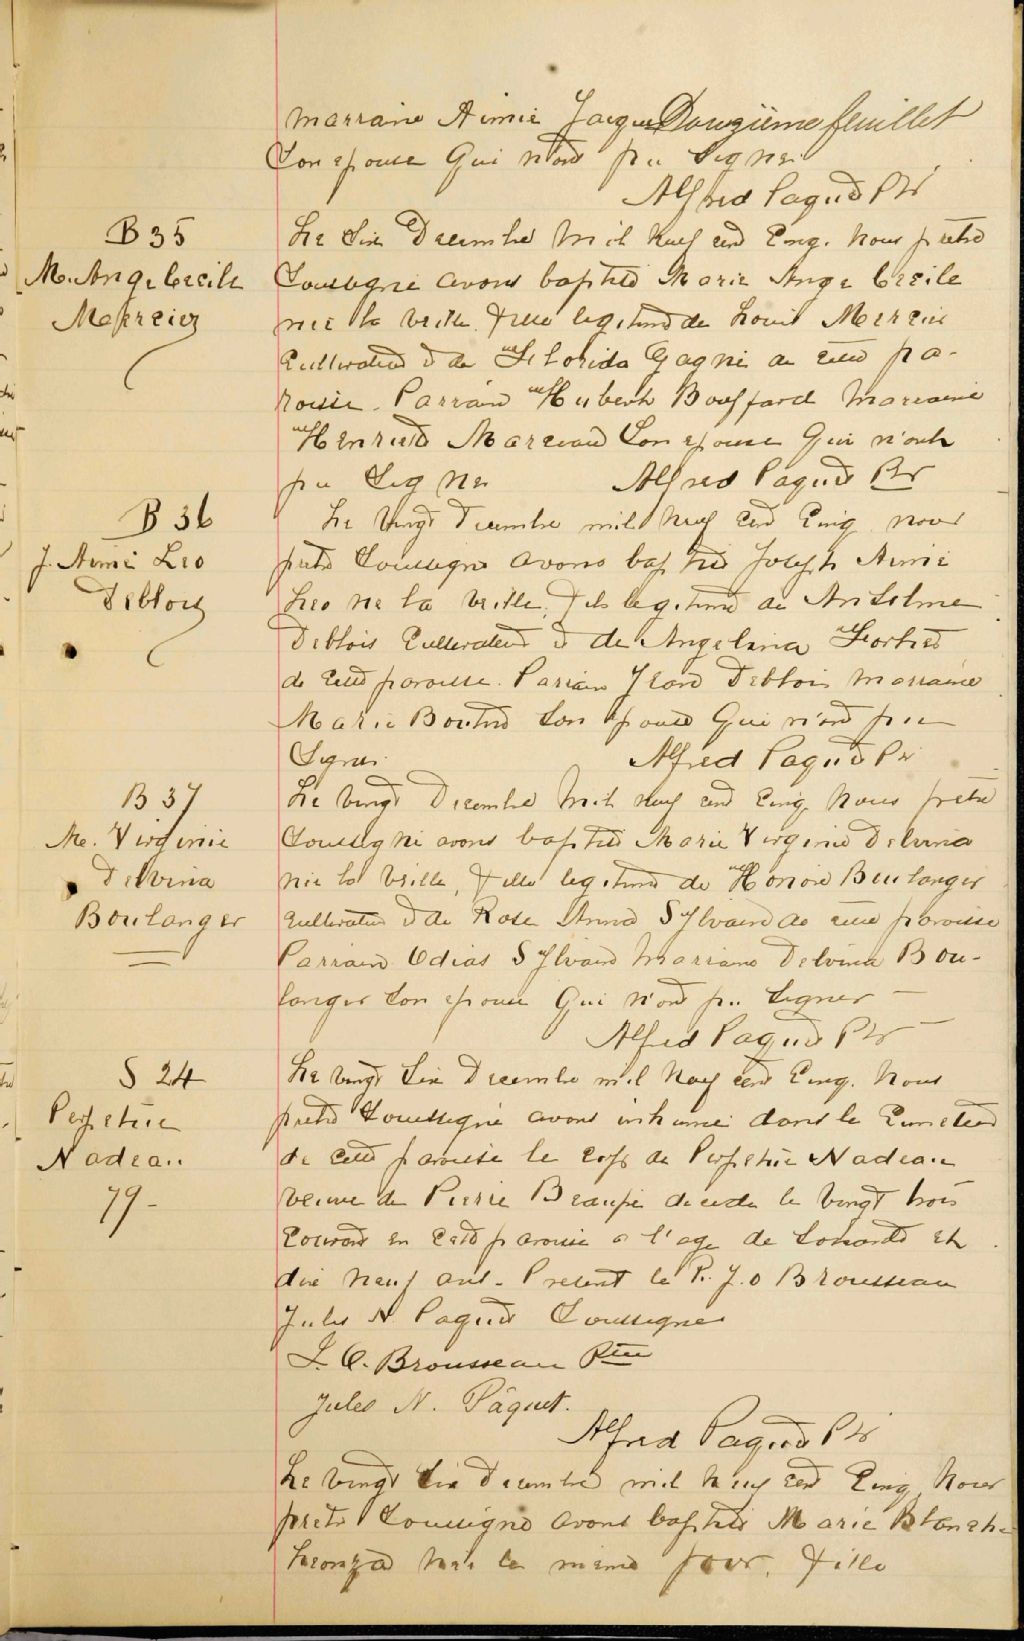 marraine Aimée Jacques Douzième feuillet
son epouse Qui n'ont pu signer
Alfred Paquet Ptr
B 35
M. Ange Cecile
Mercier
Le six Decembre mil neuf cent cinq. nous pretre
soussigné avons baptisé Marie Ange Cecile
née la veille, fille legitime de Louis Mercier
cultivateur et de Florida Gagné de cette pa-
roisse. Parrain Hubert Bouffard marraine
Henriette Marceau son epouse Qui n'ont
pu signer Alfred Paquet Ptr
B 36
J. Aimé Leo
Deblois
Le vingt Decembre mil neuf cent cinq nous
pretre soussigné avons baptisé Joseph Aimé
Leo né la veille, fils legitime de Anselme
Deblois cultivateur et de Angelina Fortier
de cette paroisse. Parrain Jean Deblois marraine
Marie Boutin son epouse Qui n'ont pu
signer Alfred Paquet Ptr
B 37
M. Virginie
Delvina
Boulanger
Le vingt Decembre mil neuf cent cinq nous pretre
soussigné avons baptisé Marie Virginie Delvina
née la veille, fille legitime de Honoré Boulanger
cultivateur et de Rose Anna Sylvain de cette paroisse
Parrain Odias Sylvain marraine Delvina Bou-
langer son epouse Qui n'ont pu signer —
Alfred Paquet Ptr —
S 24
Perpetue
Nadeau
79 -
Le vingt six Decembre mil neuf cent cinq. nous
pretre soussigné avons inhumé dans le cimetiere
de cette paroisse le corps de Perpetue Nadeau
veuve de Pierre Beaupé decedee le vingt trois
courant en cette paroisse a l'age de soixante et
dix neuf ans. Present le R. J. O Brousseau
Jules N Paquet soussignes
J. O. Brousseau Ptre
Jules N. Pâquet.
Alfred Paquet Ptr
Le vingt six Decembre mil neuf cent cinq, nous
pretre soussigné avons baptisé Marie Blanche
née le meme jour, fille